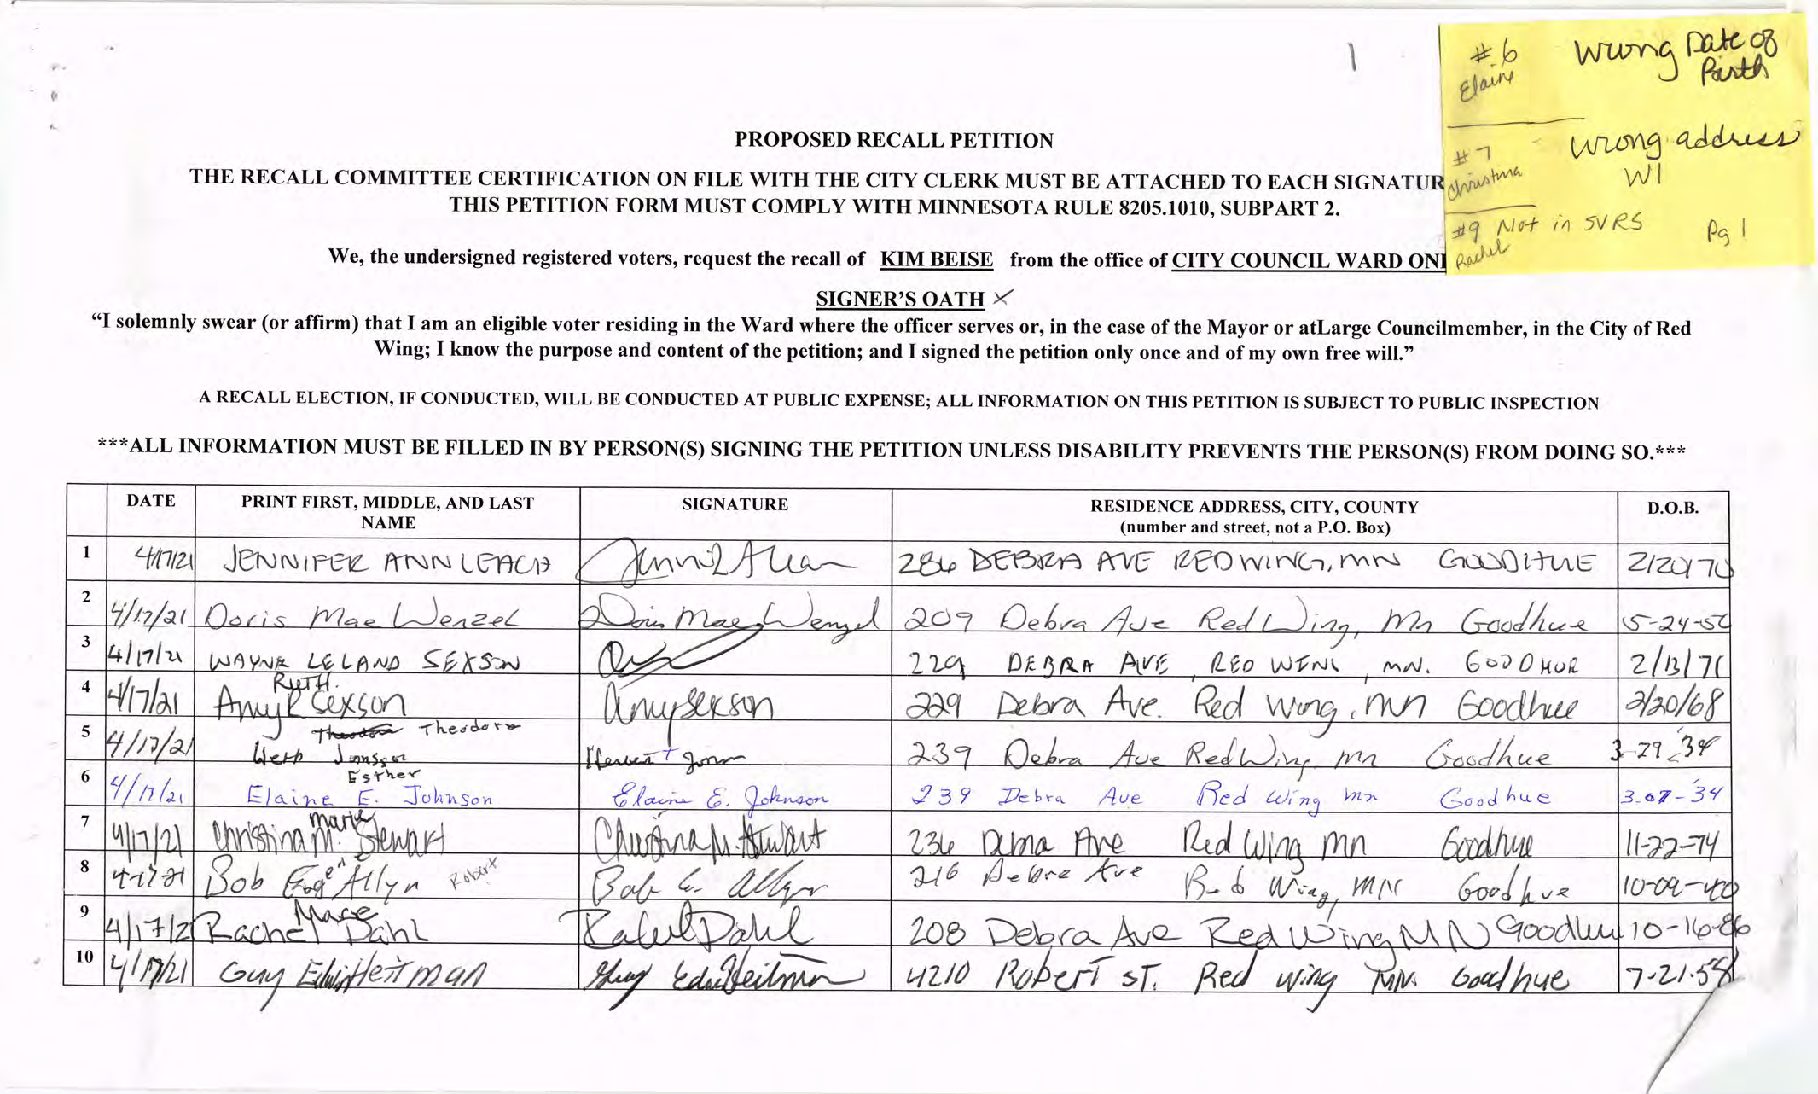 1
#6 Wrong Date of
Elaine Birth
#7 Wrong address
Christina WI
#9 Not in SVRS
Rachel Pg 1
PROPOSED RECALL PETITION
THE RECALL COMMITTEE CERTIFICATION ON FILE WITH THE CITY CLERK MUST BE ATTACHED TO EACH SIGNATUR
THIS PETITION FORM MUST COMPLY WITH MINNESOTA RULE 8205.1010, SUBPART 2.
We, the undersigned registered voters, request the recall of KIM BEISE from the office of CITY COUNCIL WARD ONE
SIGNER'S OATH X
“I solemnly swear (or affirm) that I am an eligible voter residing in the Ward where the officer serves or, in the case of the Mayor or atLarge Councilmember, in the City of Red
Wing; I know the purpose and content of the petition; and I signed the petition only once and of my own free will.”
A RECALL ELECTION, IF CONDUCTED, WILL BE CONDUCTED AT PUBLIC EXPENSE; ALL INFORMATION ON THIS PETITION IS SUBJECT TO PUBLIC INSPECTION
***ALL INFORMATION MUST BE FILLED IN BY PERSON(S) SIGNING THE PETITION UNLESS DISABILITY PREVENTS THE PERSON(S) FROM DOING SO.***
DATE PRINT FIRST, MIDDLE, AND LAST SIGNATURE RESIDENCE ADDRESS, CITY, COUNTY D.O.B.
NAME (number and street, not a P.O. Box)
1 4/17/21 JENNIFER ANN LEACH 286 DEBRA AVE RED WING, MN GOODHUE 2/20/70
2 4/17/21 Doris Mae Wenzel Doris Mae Wenzel 209 Debra Ave Red Wing, Mn Goodhue 5-24-52
3 4/17/21 WAYNE LELAND SEXSON 229 DEBRA AVE, RED WING, MN. GOODHUE 2/13/71
RUTH.
4 4/17/21 Amy R Sexson Amy Sexson 229 Debra Ave. Red Wing, MN Goodhue 2/20/68
Theodore
5 4/17/21 Herb Jonsson 239 Debra Ave Red Wing Mn Goodhue 3-29-34
Esther
6 4/17/21 Elaine E. Johnson Elaine E. Johnson 239 Debra Ave Red Wing Mn Goodhue 3-07-34
Marie
7 4/17/21 Christina M. Stewart Christina M. Stewart 236 Debra Ave Red Wing Mn Goodhue 11-22-74
8 4-17-21 Bob Eugene Allyn Robert Bob E. Allyn 216 Debra Ave Red Wing, MN Goodhue 10-09-40
Mae
9 4/17/21 Rachel Dahl Rachel Dahl 208 Debra Ave Red Wing MN Goodhue 10-16-86
10 4/17/21 Guy Edwin Heitman Guy Edwin Heitman 4210 Robert ST. Red Wing MN. Goodhue 7-21-58